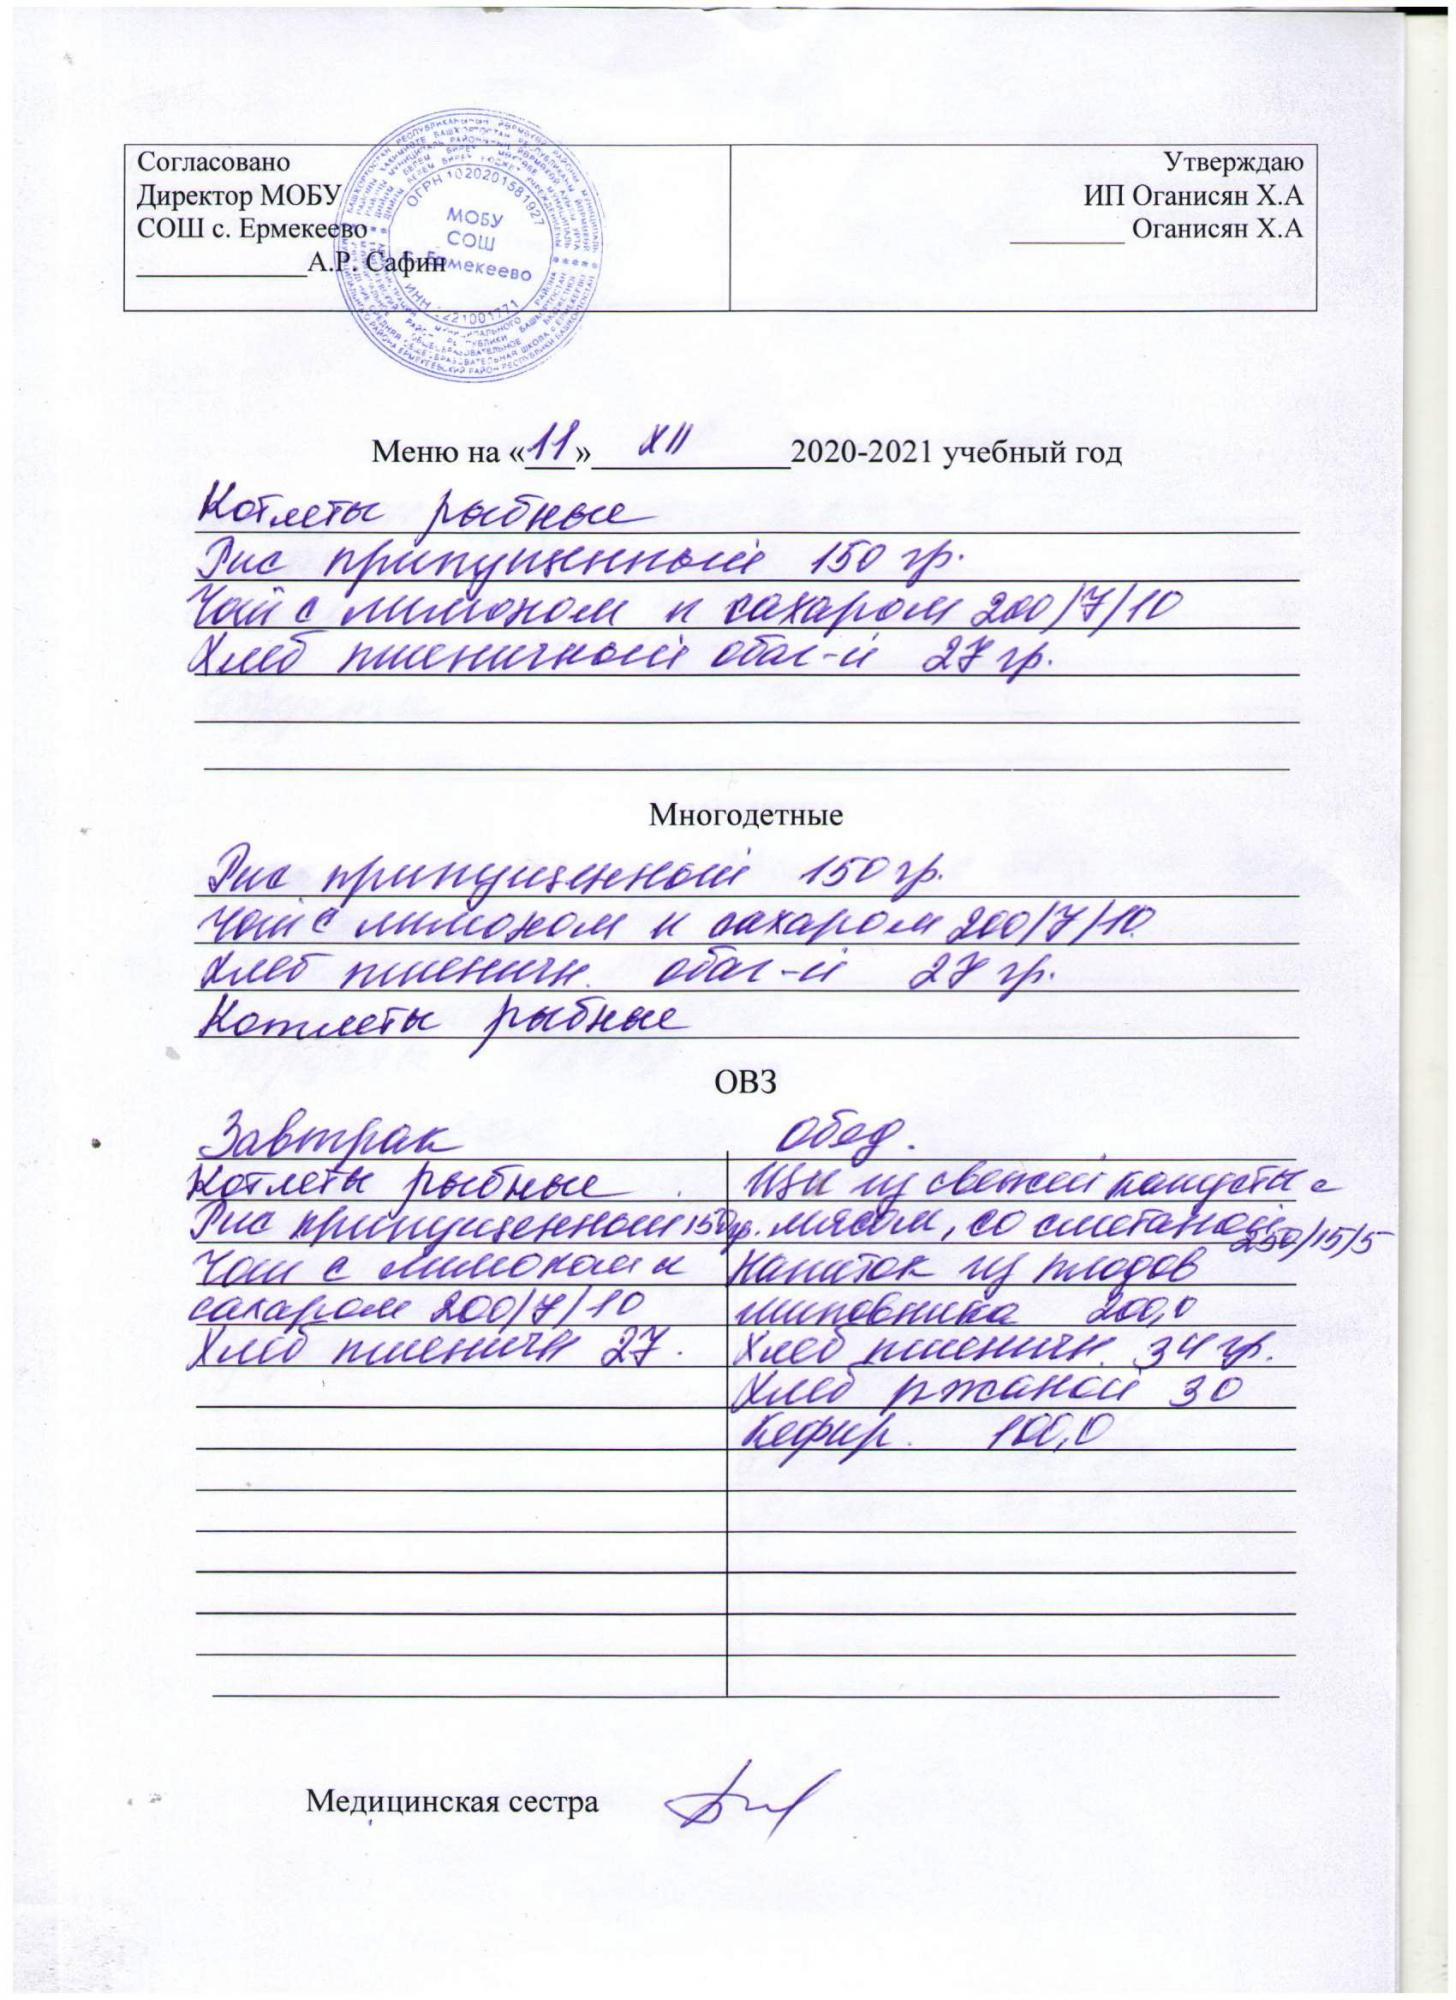 Согласовано
Директор МОБУ
СОШ с. Ермекеево
____________А.Р. Сафин
Утверждаю
ИП Оганисян Х.А
________ Оганисян Х.А
ОГРН 1020201581927
МОБУ
СОШ
с. Ермекеево
Меню на «11» XII 2020-2021 учебный год
Котлеты рыбные
Рис припущенный 150 гр.
Чай с лимоном и сахаром 200/7/10
Хлеб пшеничный обог-й 27 гр.
Многодетные
Рис припущенный 150 гр.
Чай с лимоном и сахаром 200/7/10
Хлеб пшеничн. обог-й 27 гр.
Котлеты рыбные
ОВЗ
Завтрак
Котлеты рыбные
Рис припущенный 150гр.
Чай с лимоном и
сахаром 200/7/10
Хлеб пшеничн 27.
Обед.
Щи из свежей капусты с
мясом, со сметаной 250/15/5
Напиток из плодов
шиповника 200,0
Хлеб пшеничн. 34 гр.
Хлеб ржаной 30
Кефир. 100,0
Медицинская сестра